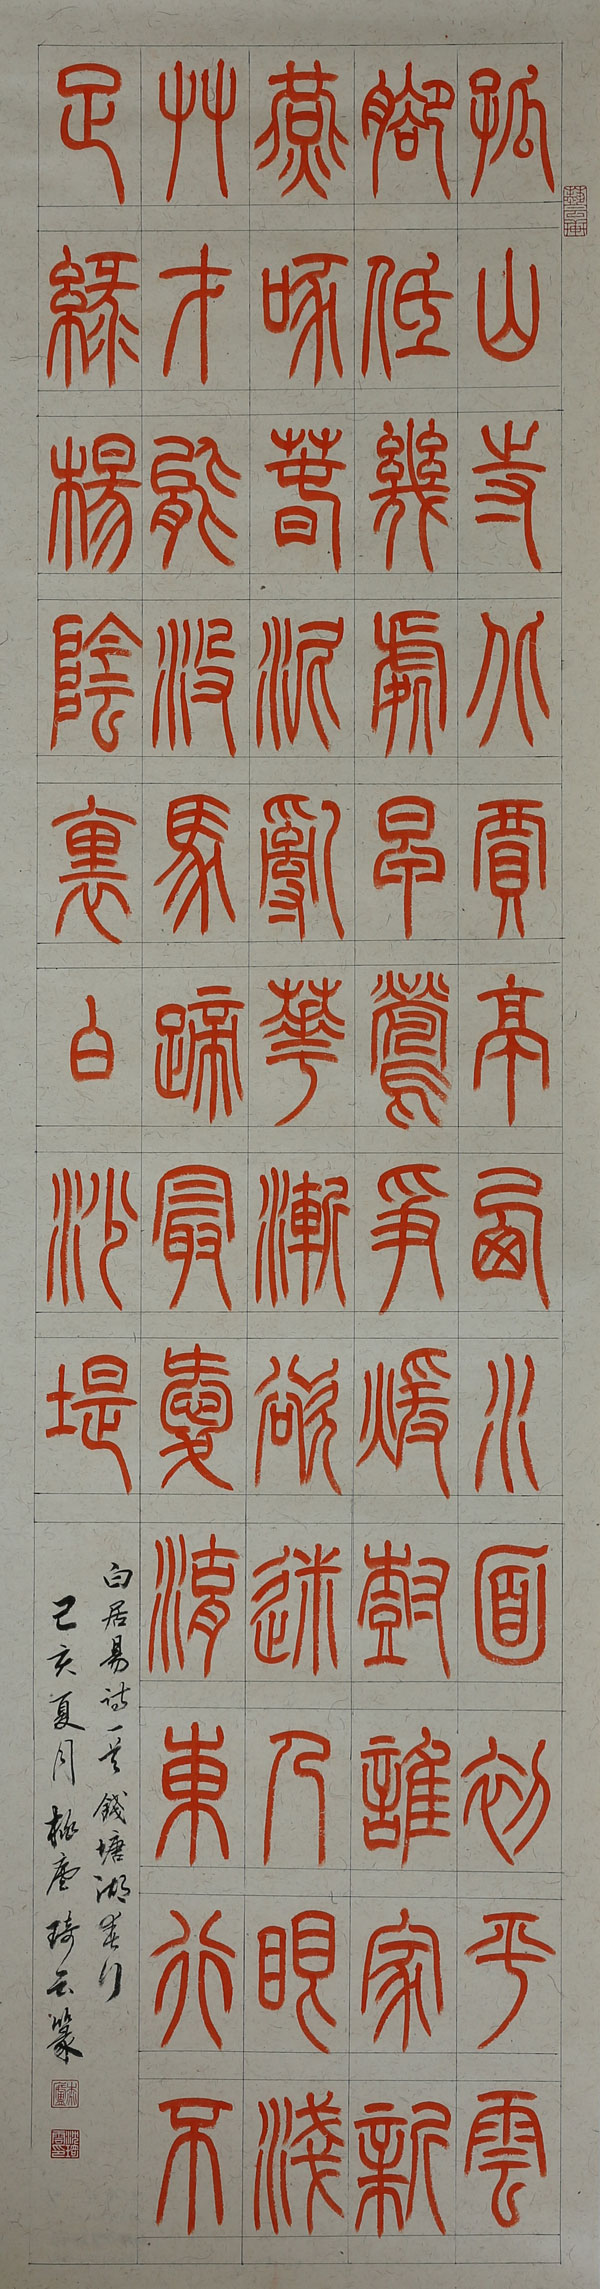 孤山寺北賈亭西水面初平雲
腳低幾處早鶯爭煖樹誰家新
燕啄春泥亂華漸欲迷人眼淺
艸才能沒馬蹄最愛湖東行不
足綠楊陰裏白沙堤
白居易詩一首錢塘湖春行
己亥夏月琦云篆